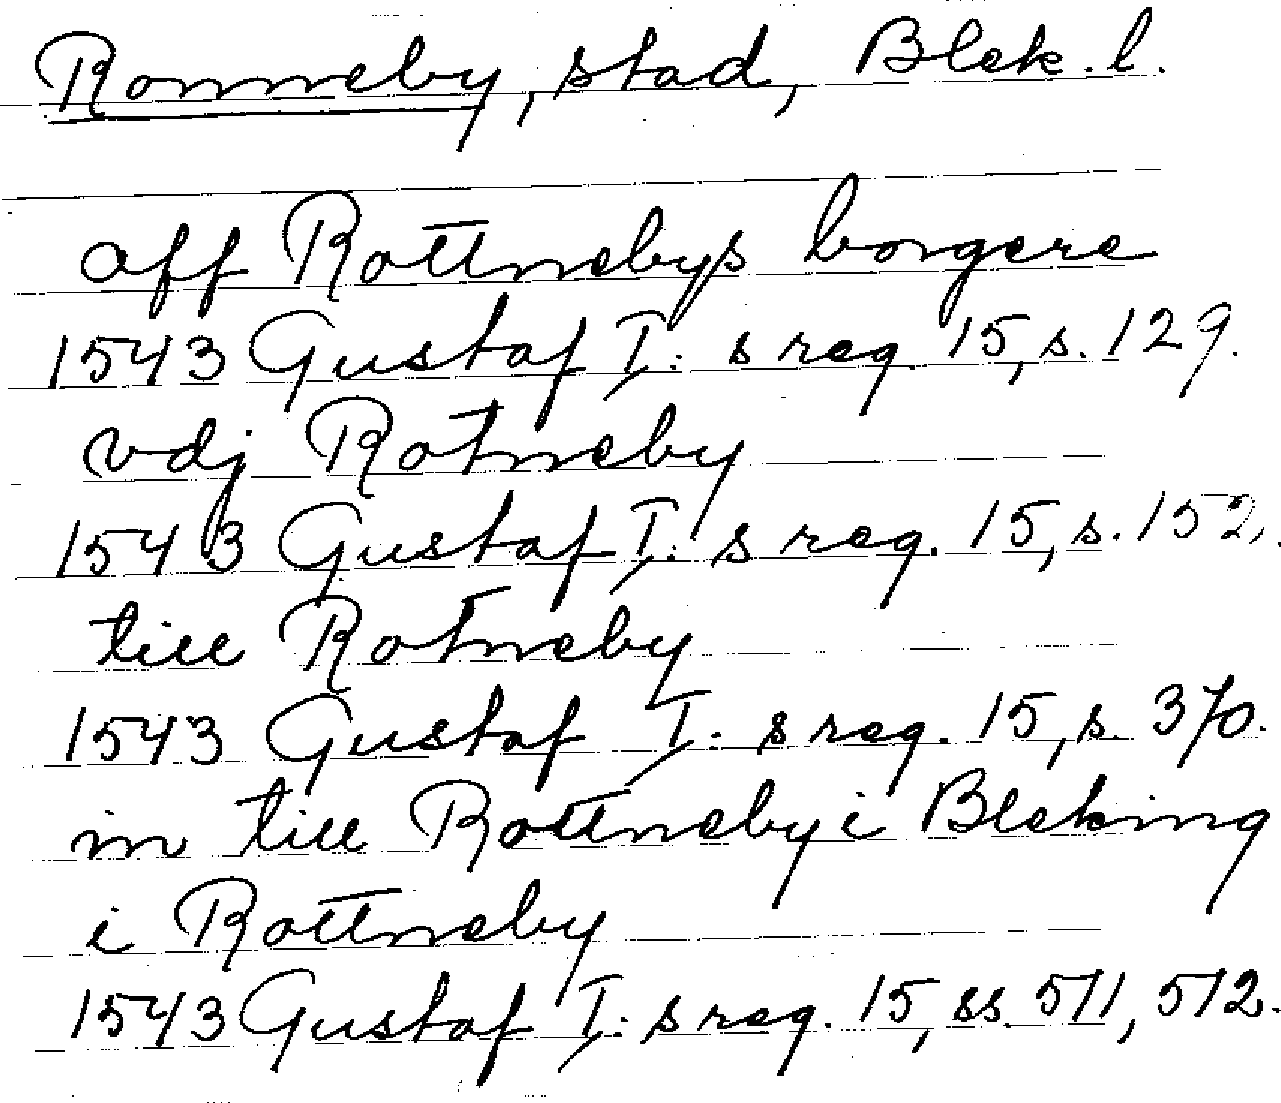 Ronneby, stad, Blek. l.
aff Rottnebys borgere
1543 Gustaf I:s reg. 15, s. 129.
vdj Rotneby
1543 Gustaf I:s reg. 15, s. 152.
till Rotneby
1543 Gustaf I:s reg. 15, s. 370.
in till Rottneby i Bleking
i Rottneby
1543 Gustaf I:s reg. 15, ss. 511, 512.